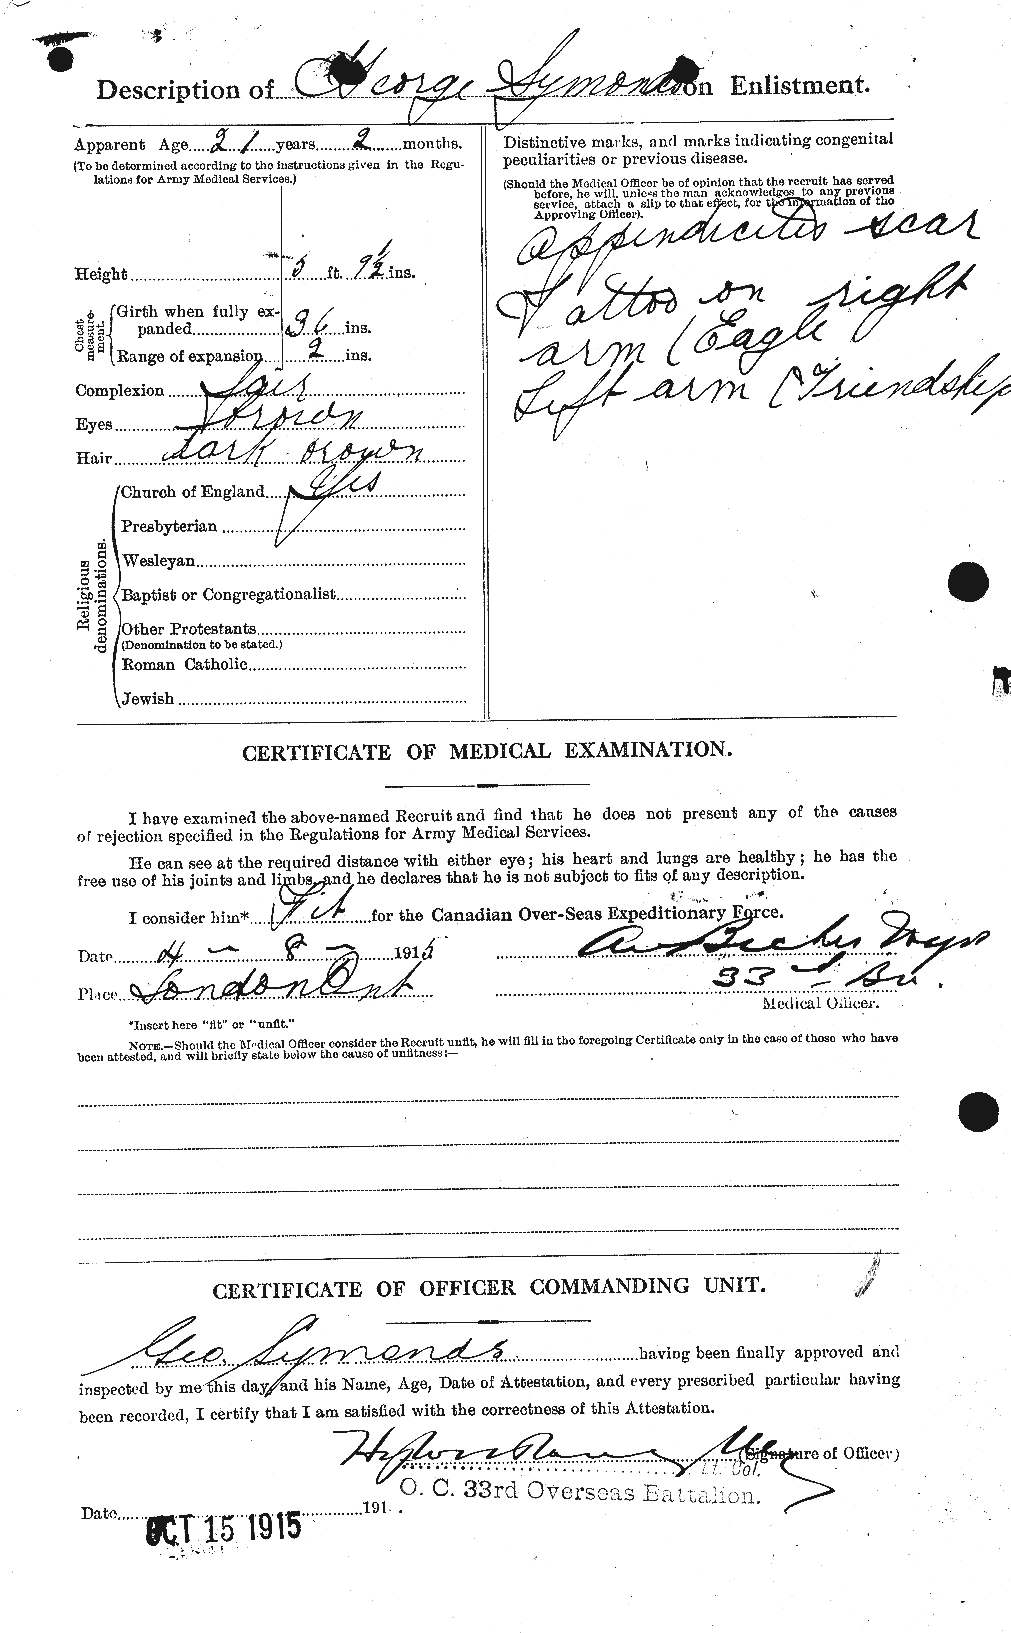 Description of George Symonds on Enlistment.
Apparent Age 21 years 2 months.
(To be determined according to the instructions given in the Regu-
lations for Army Medical Services.)
Height 5 ft. 9½ ins.
Chest measurement.
Girth when fully ex-
panded 36 ins.
Range of expansion 2 ins.
Complexion Fair
Eyes Brown
Hair dark brown
Religious denominations.
Church of England Yes
Presbyterian
Wesleyan
Baptist or Congregationalist
Other Protestants
(Denomination to be stated.)
Roman Catholic
Jewish
Distinctive marks, and marks indicating congenital
peculiarities or previous disease.
(Should the Medical Officer be of opinion that the recruit has served
before, he will, unless the man acknowledges to any previous
service, attach a slip to that effect, for the information of the
Approving Officer).
Appindicitis scar
Tattoo on right
arm (Eagle
Left arm (Friendship
CERTIFICATE OF MEDICAL EXAMINATION.
I have examined the above-named Recruit and find that he does not present any of the causes
of rejection specified in the Regulations for Army Medical Services.
He can see at the required distance with either eye; his heart and lungs are healthy; he has the
free use of his joints and limbs, and he declares that he is not subject to fits of any description.
I consider him* Fit for the Canadian Over-Seas Expeditionary Force.
Date 4 - 8 - 1915
33rd Bn.
Place London Ont
Medical Officer.
*Insert here "fit" or "unfit."
NOTE.—Should the Medical Officer consider the Recruit unfit, he will fill in the foregoing Certificate only in the case of those who have
been attested, and will briefly state below the cause of unfitness:—
CERTIFICATE OF OFFICER COMMANDING UNIT.
Geo. Symonds having been finally approved and
inspected by me this day, and his Name, Age, Date of Attestation, and every prescribed particular having
been recorded, I certify that I am satisfied with the correctness of this Attestation.
(Signature of Officer)
Lt. Col.
O. C. 33rd Overseas Battalion.
Date 191 .
OCT 15 1915